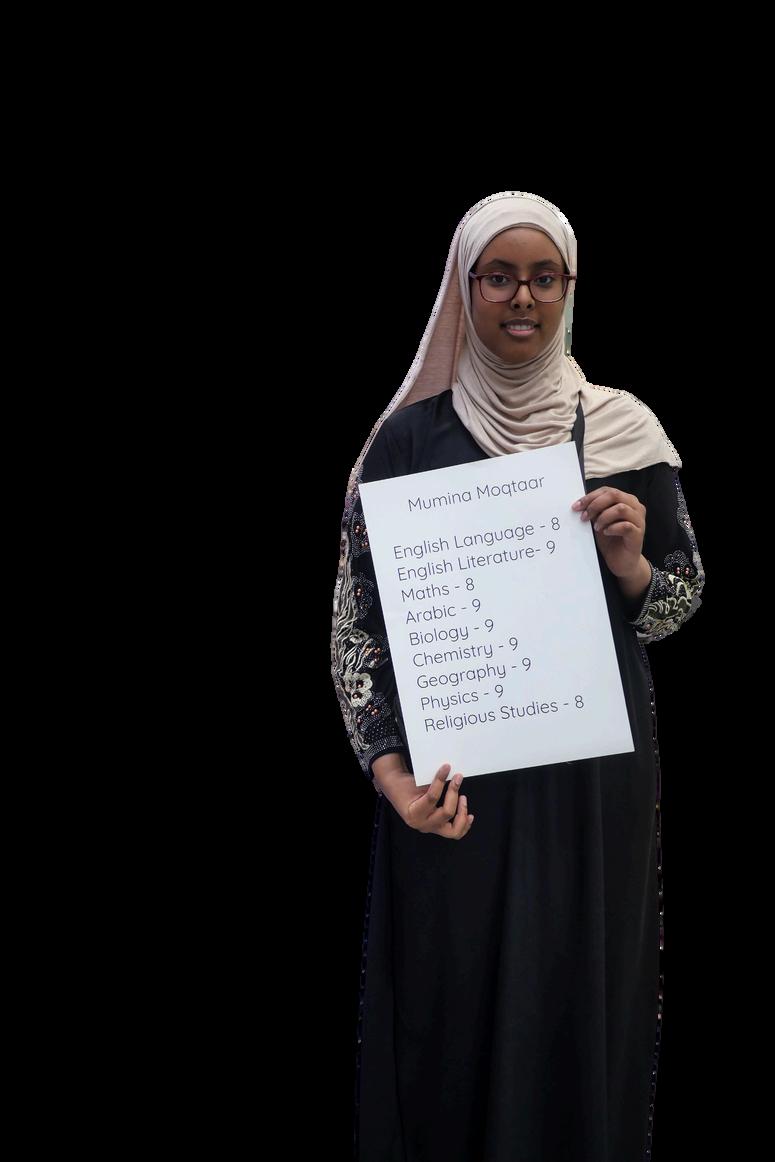 Mumina Moqtaar
English Language - 8
English Literature- 9
Maths - 8
Arabic - 9
Biology - 9
Chemistry - 9
Geography - 9
Physics - 9
Religious Studies - 8